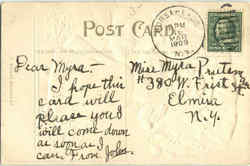 POST CARD
PM
MAR
1909
N.Y.
Dear Myra,-
I hope this
card will
please you I
will come down
as soon as I
can. From John.
Miss Myra
#380 W. First St.
Elmira
N.Y.